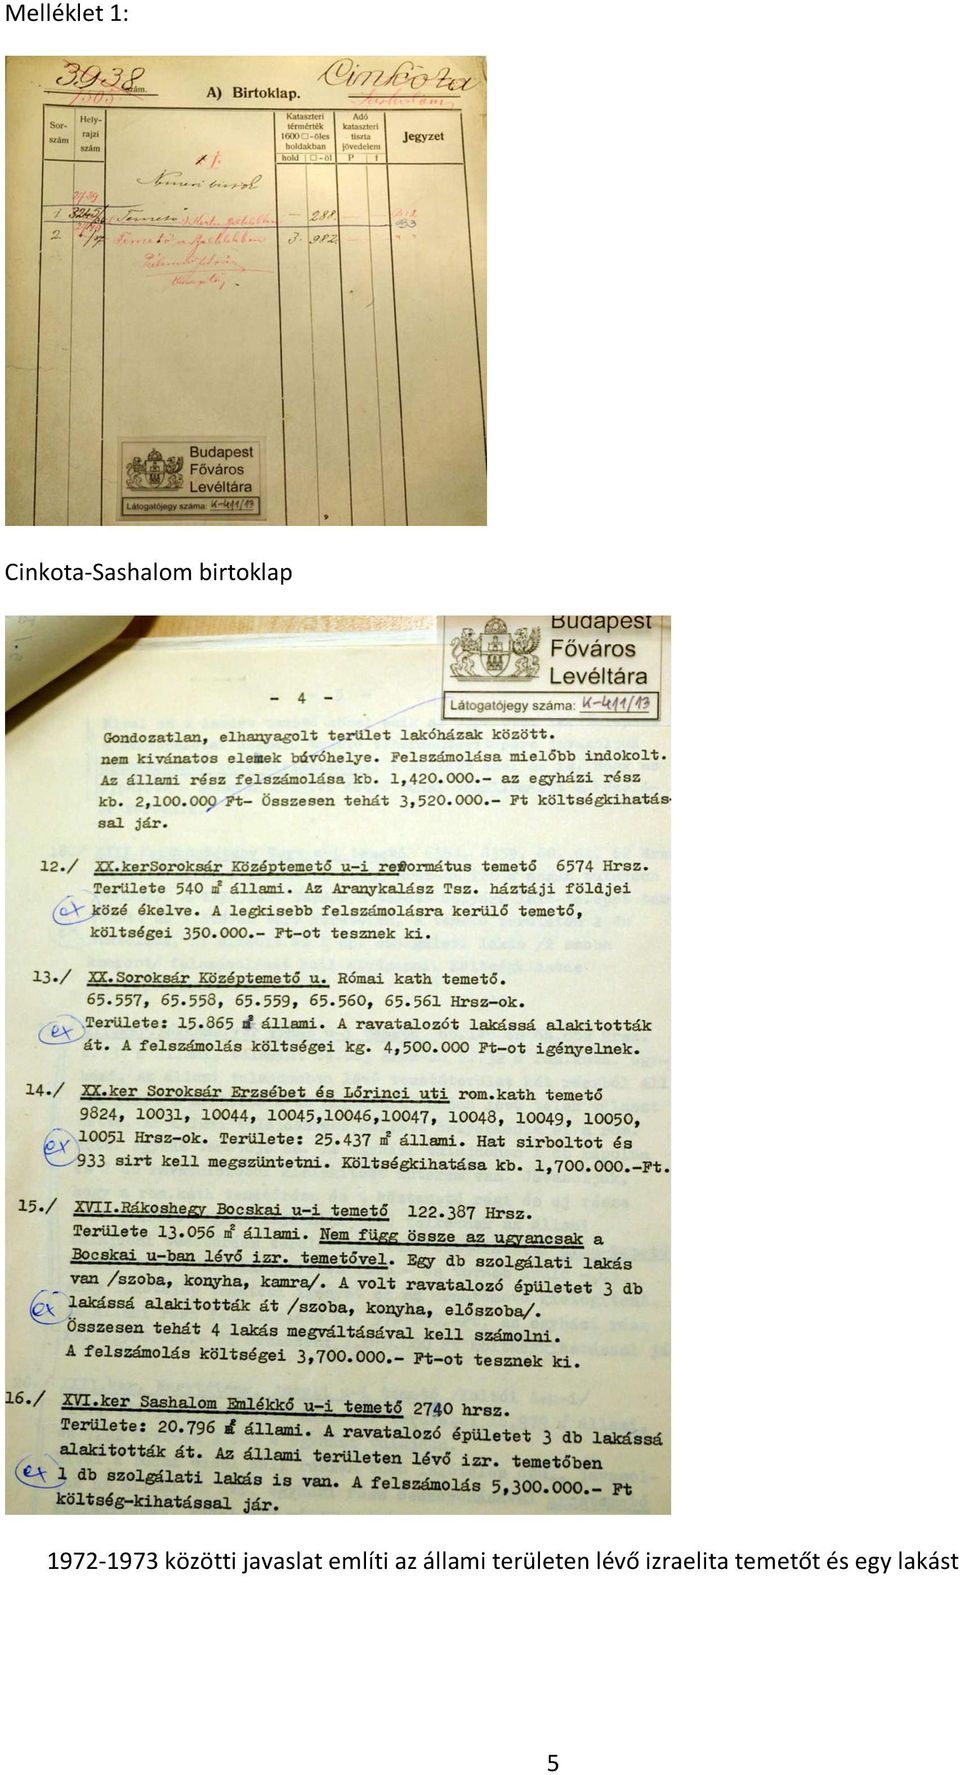 Melléklet 1:
3938 szám. A) Birtoklap. Cinkota
1505. Sashalom
Sor-szám Hely-rajzi szám Kataszteri térmérték 1600 □-öles holdakban Adó kataszteri tiszta jövedelem Jegyzet
hold □-öl P f
1 "Temető" - 288. -
2. Temető a 3. 982. -
Budapest
Főváros
Levéltára
Látogatójegy száma: K-411/13
Cinkota-Sashalom birtoklap
Budapest
Főváros
Levéltára
Látogatójegy száma: K-411/13
- 4 -
Gondozatlan, elhanyagolt terület lakóházak között.
nem kivánatos elemek búvóhelye. Felszámolása mielőbb indokolt.
Az állami rész felszámolása kb. 1,420.000.- az egyházi rész
kb. 2,100.000 Ft- Összesen tehát 3,520.000.- Ft költségkihatás-
sal jár.
12./ XX.kerSoroksár Középtemető u-i református temető 6574 Hrsz.
Területe 540 m² állami. Az Aranykalász Tsz. háztáji földjei
ex közé ékelve. A legkisebb felszámolásra kerülő temető,
költségei 350.000.- Ft-ot tesznek ki.
13./ XX.Soroksár Középtemető u. Római kath temető.
65.557, 65.558, 65.559, 65.560, 65.561 Hrsz-ok.
ex Területe: 15.865 m² állami. A ravatalozót lakássá alakitották
át. A felszámolás költségei kg. 4,500.000 Ft-ot igényelnek.
14./ XX.ker Soroksár Erzsébet és Lőrinci uti rom.kath temető
9824, 10031, 10044, 10045,10046,10047, 10048, 10049, 10050,
ex 10051 Hrsz-ok. Területe: 25.437 m² állami. Hat sirboltot és
933 sirt kell megszüntetni. Költségkihatása kb. 1,700.000.-Ft.
15./ XVII.Rákoshegy Bocskai u-i temető 122.387 Hrsz.
Területe 13.056 m² állami. Nem függ össze az ugyancsak a
Bocskai u-ban lévő izr. temetővel. Egy db szolgálati lakás
van /szoba, konyha, kamra/. A volt ravatalozó épületet 3 db
ex lakássá alakitották át /szoba, konyha, előszoba/.
Összesen tehát 4 lakás megváltásával kell számolni.
A felszámolás költségei 3,700.000.- Ft-ot tesznek ki.
16./ XVI.ker Sashalom Emlékkő u-i temető 2740 hrsz.
Területe: 20.796 állami. A ravatalozó épületet 3 db lakássá
alakitották át. Az állami területen lévő izr. temetőben
ex 1 db szolgálati lakás is van. A felszámolás 5,300.000.- Ft
költség-kihatással jár.
1972-1973 közötti javaslat említi az állami területen lévő izraelita temetőt és egy lakást
5